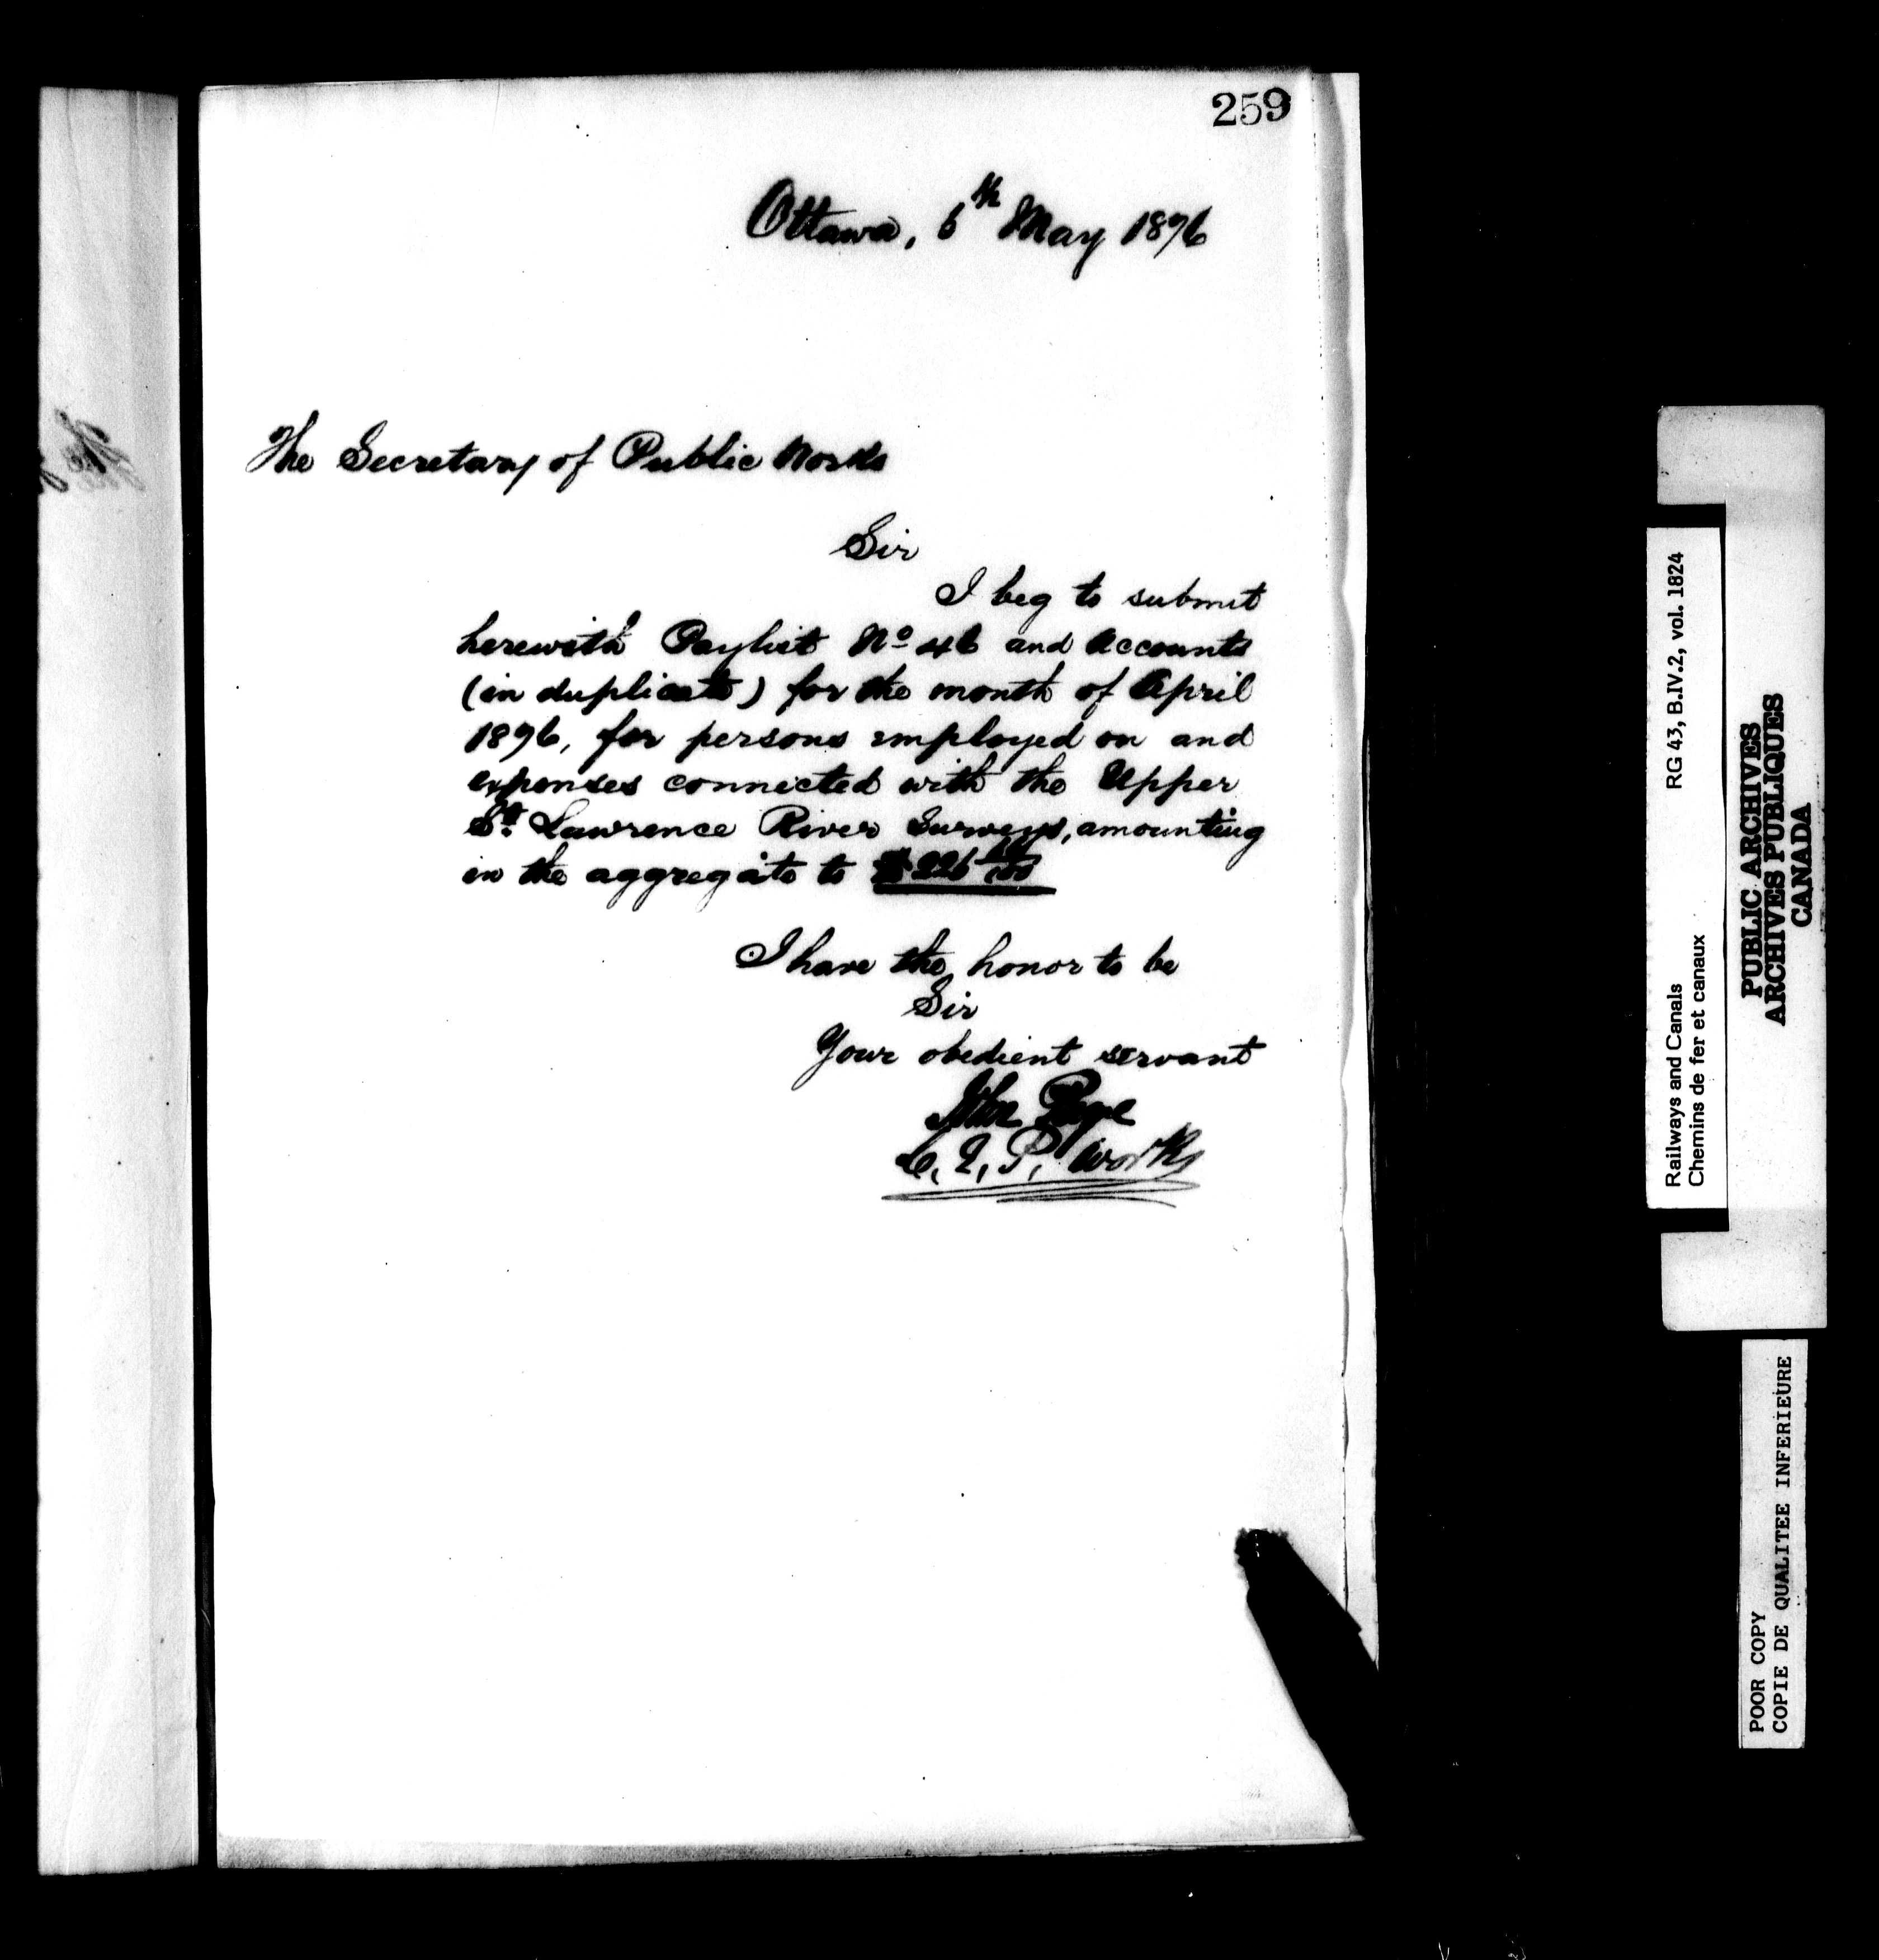 259
Ottawa, 6th May 1876
The Secretary of Public Works
Sir
I beg to submit
herewith Paylist No 46 and Accounts
(in duplicate) for the month of April
1876, for persons employed on and
expenses connected with the Upper
St. Lawrence River Surveys, amounting
in the aggregate to
I have the honor to be
Sir
Your obedient servant
John Page
C. E. P. Works
RG 43, B.IV.2, vol. 1824
Railways and Canals
Chemins de fer et canaux
PUBLIC ARCHIVES
ARCHIVES PUBLIQUES
CANADA
POOR COPY
COPIE DE QUALITEE INFERIEURE